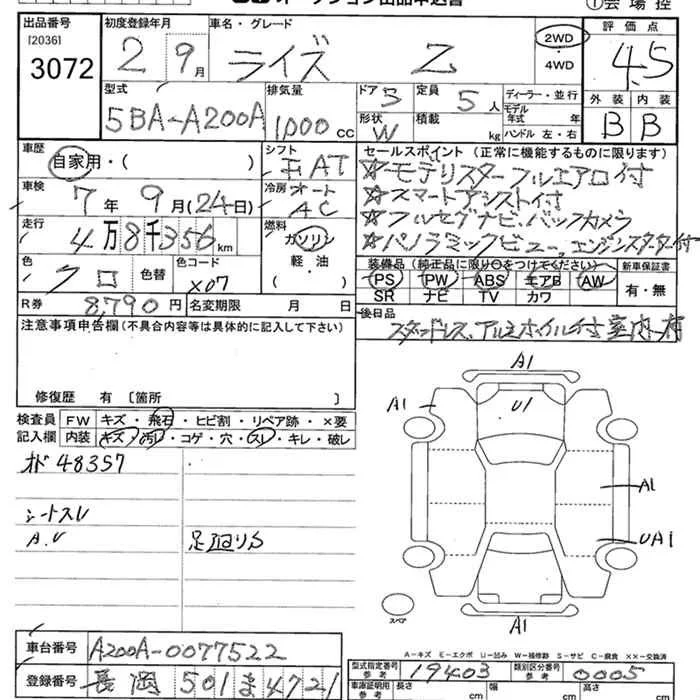 オークション出品申込書
①会場控
出品番号 初度登録年月 車名・グレード 評価点
[2036]
3072 2 9月 ライズ Z 2WD 4WD 4.5
型式 排気量 ドア 5 定員 5人 ディーラー・並行 外装 内装
5BA-A200A 1,000cc 形状 W 積載 kg モデル年式 年式 ハンドル 左・右 B B
車歴 自家用・( ) シフト FAT セールスポイント (正常に機能するものに限ります)
☆モデリスターフルエアロ付
車検 7年9月(24日) 冷房 オート AC ☆スマートアシスト付
☆フルセグナビ、バックカメラ
走行 4万8千356km 燃料 ガソリン 軽・油 ( ) ☆パノラミックビュー、エンジンスターター付
色 クロ 色替 色コード X07 装備品 (純正品に限り○をつけてください) 新車保証書
PS PW ABS エアB AW 有・無
SR ナビ TV カワ
R券 8,790円 名変期限 月 日
後日品
スタッドレス、アルミホイル付 室内 有
注意事項申告欄(不具合内容等は具体的に記入して下さい)
修復歴 有 〔箇所 〕
検査員 FW キズ・飛石・ヒビ割・リペア跡・×要
記入欄 内装 キズ・汚れ・コゲ・穴・スレ・キレ・破レ
オド48357
シートスレ
A.U 足廻りS
A1
A1 U1
A1
UA1
スペア
A1
A-キズ E-エクボ U-凹み W-補修跡 S-サビ C-腐食 XX-交換済
車台番号 A200A-0077522
型式指定番号 参考 19403 類別区分番号 参考 0005
登録番号 長岡 501 ま 4721
車庫証明用 参考 長さ cm 幅 cm 高さ cm